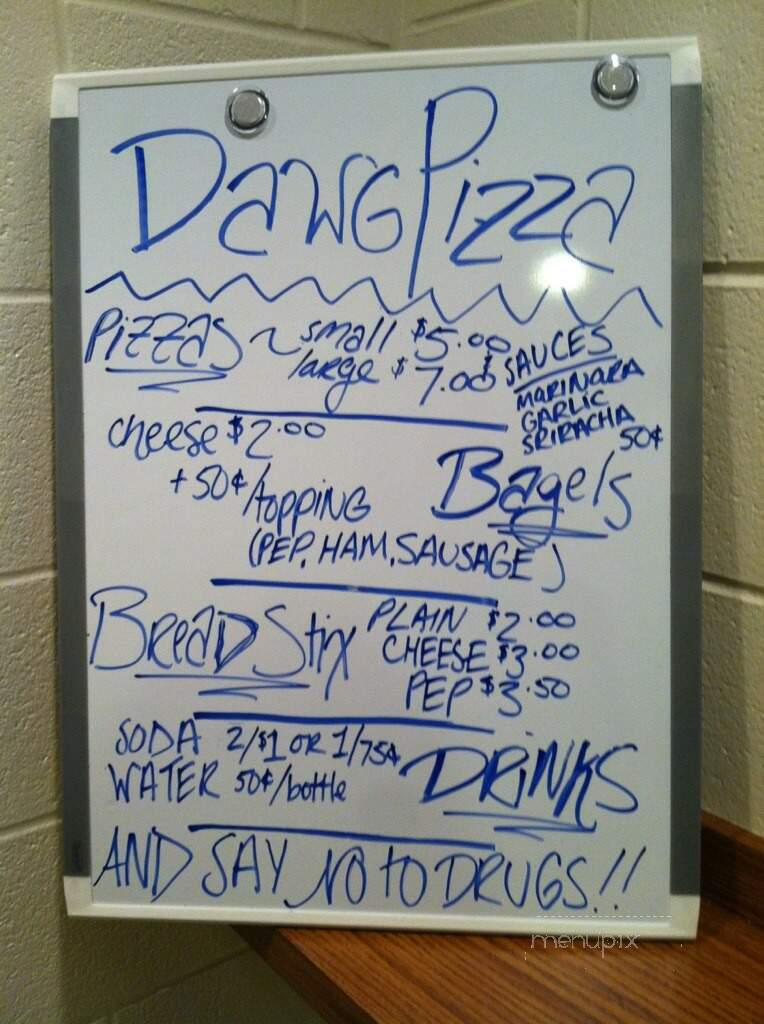 DAWG Pizza
Pizzas ~ small $5.00
large $7.00
SAUCES
MARINARA
GARLIC
SRIRACHA
50¢
cheese $2.00
+50¢/topping
(PEP, HAM, SAUSAGE)
Bagels
BreaD Stix
PLAIN $2.00
CHEESE $3.00
PEP $3.50
SODA 2/$1 OR 1/75¢
WATER 50¢/bottle
DRiNKS
AND SAY NO to DRUGS!!
menupix